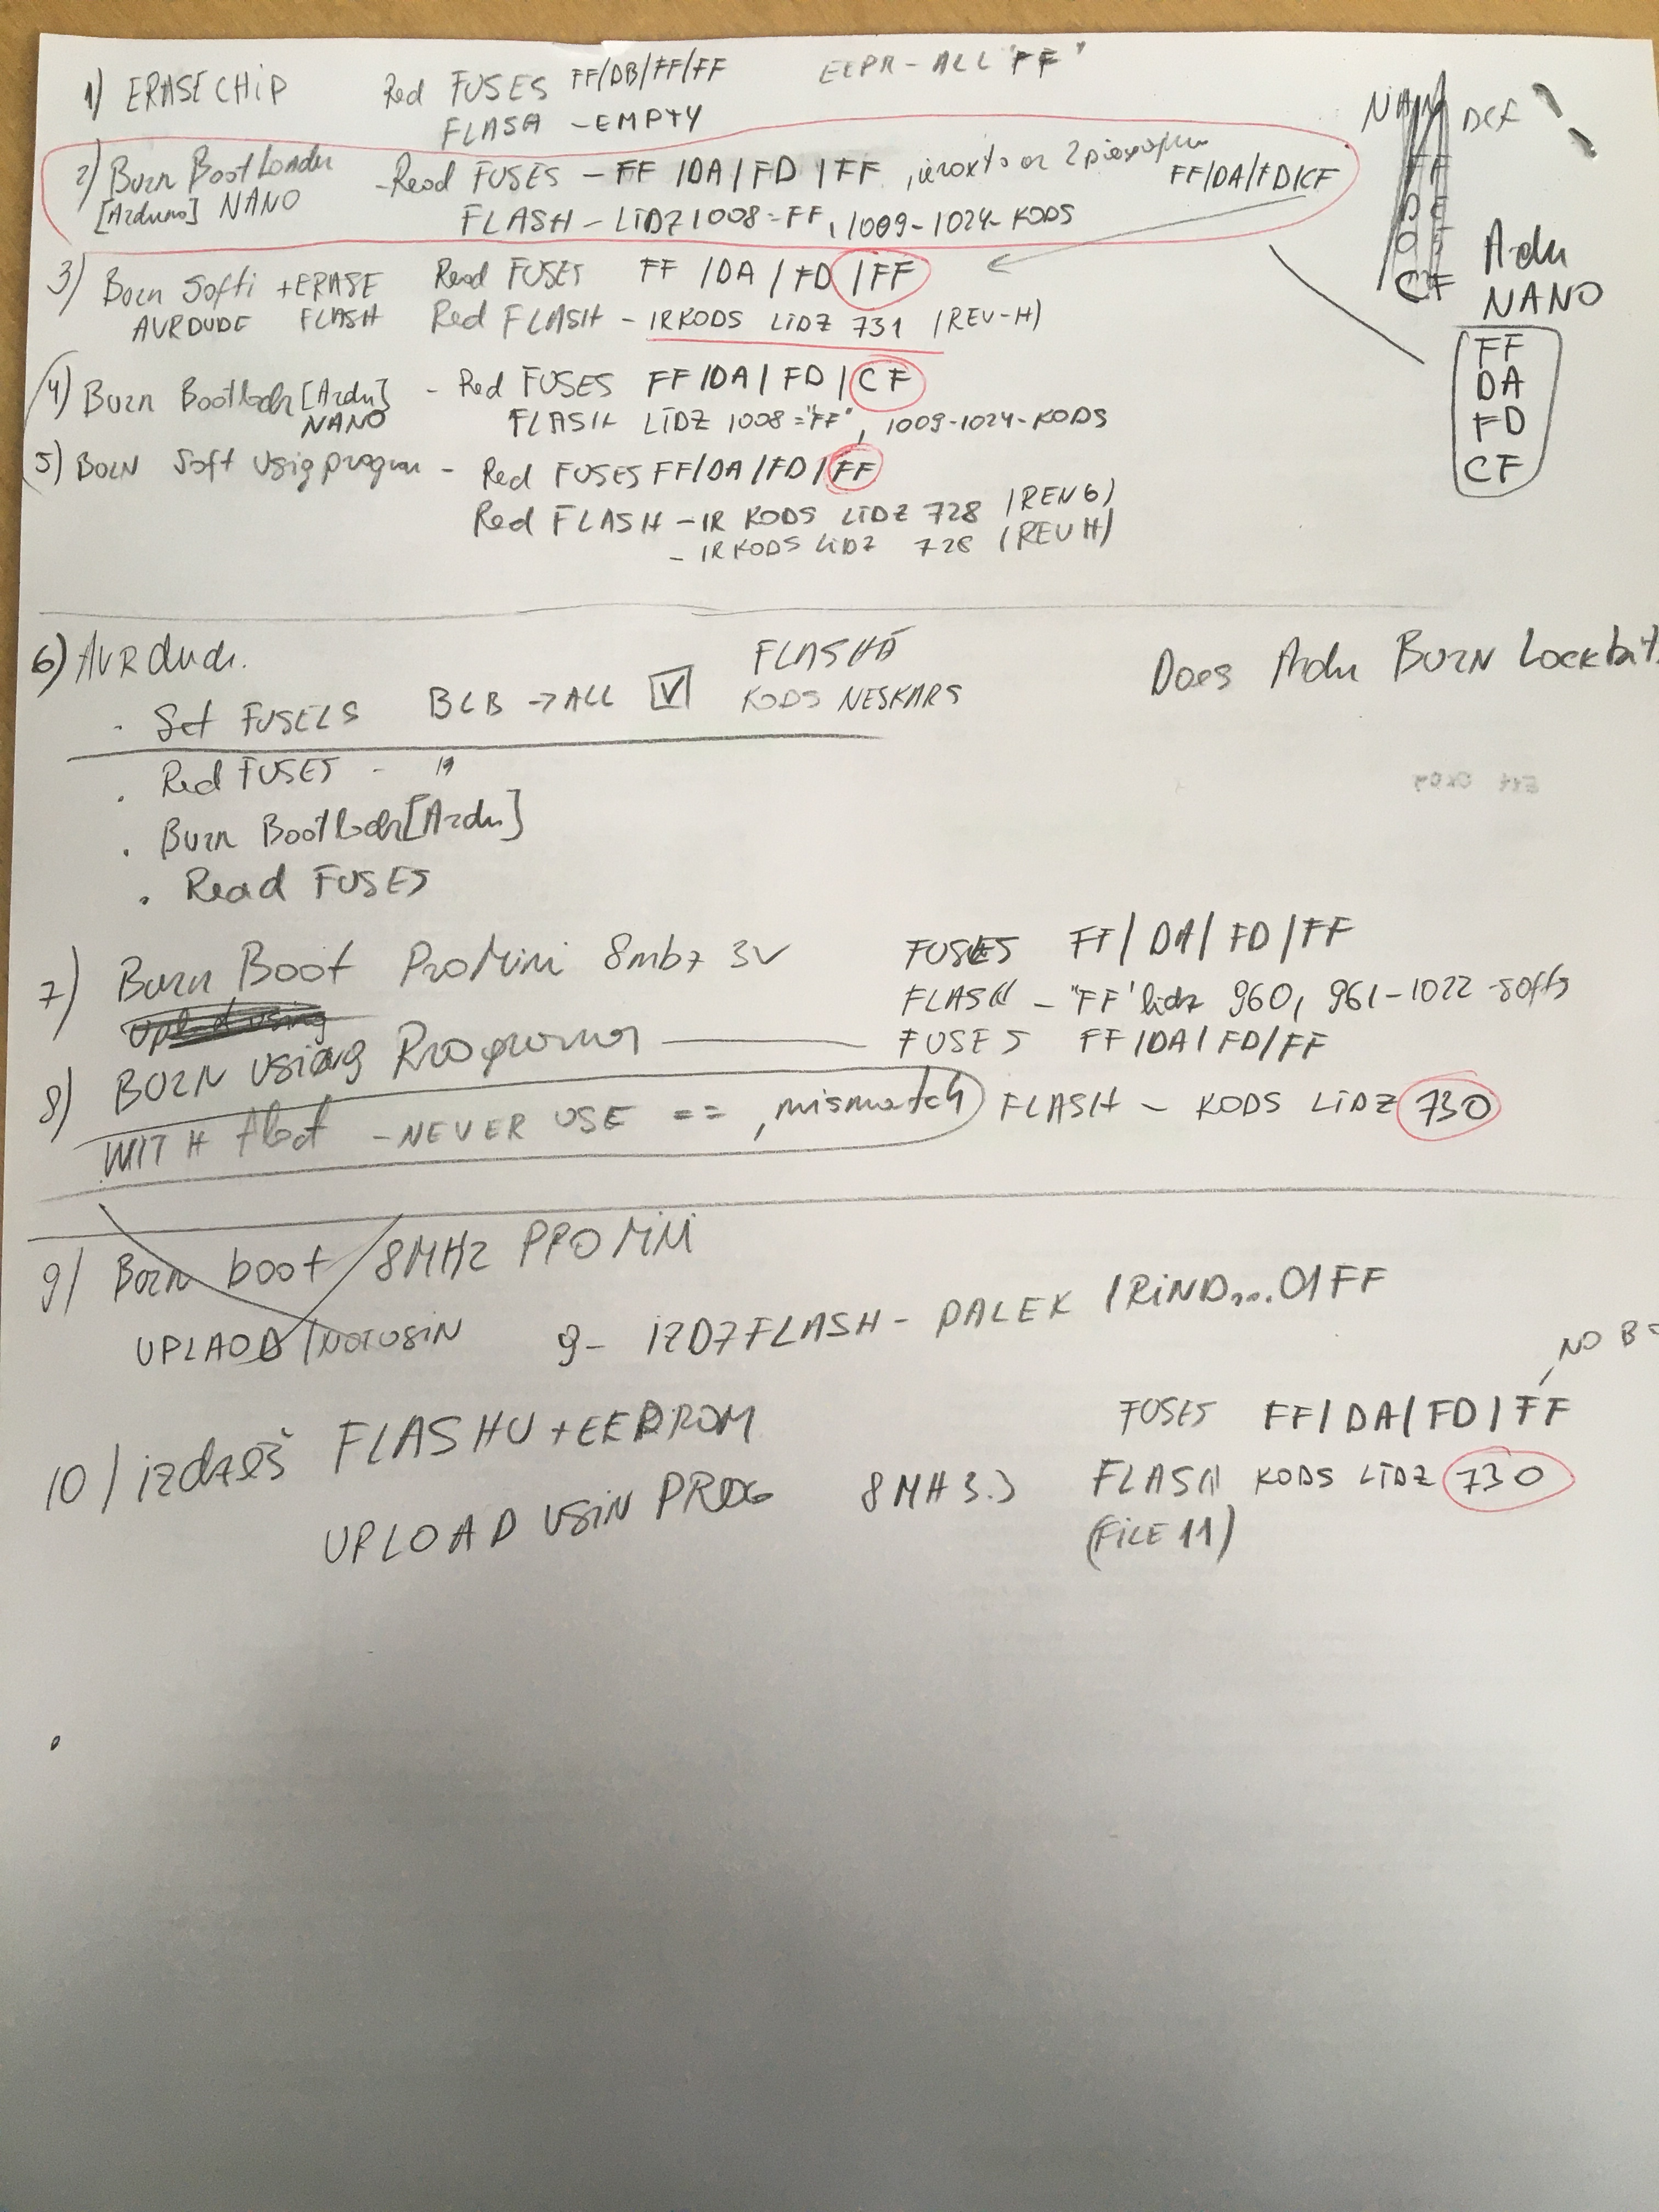 1) ERASE CHIP Red FUSES FF/DB/FF/FF EEPR - ALL "FF"
FLASH - EMPTY
2) Burn BootLoader - Read FUSES - FF /DA / FD / FF, FF/DA/FD/CF
[Arduno] NANO FLASH - LĪDZ 1008 = FF, 1009-1024-KODS
3) Burn Softi + ERASE Read FUSES FF /DA / FD / FF
AVRDUDE FLASH Red FLASH - IR KODS LĪDZ 731 (REV-H)
4) Burn Bootloder [Ardu] - Red FUSES FF/DA/ FD / CF
NANO FLASH LĪDZ 1008 = "FF", 1009-1024-KODS
5) BURN Soft Usig program - Red FUSES FF/DA/FD/FF
Red FLASH - IR KODS LĪDZ 728 (REV G)
- IR KODS LĪDZ 728 (REV H)
NANO DCF
Ardu
NANO
FF
DA
FD
CF
6) AVRdude. FLASHĀ
. Set FUSELS BLB → ALL V KODS NESKARS
Does Ardu BURN Lockbit
. Red FUSES - "
. Burn Bootloder [Ardu]
. Read FUSES
7) Burn Boot ProMini 8mhz 3V FUSES FF/DA/FD/FF
FLASH - "FF" lidz 960, 961-1022 - softs
8) BURN using Programor FUSES FF/DA/FD/FF
WITH - NEVER USE == , mismatch FLASH - KODS LĪDZ 730
9) Burn boot / 8MHZ PROMINI
UPLAOD / NOT USIN 9 - IZDZ FLASH - PALEK /RIND....01FF
NO
10) izdzēš FLASHU + EEPROM FUSES FF/DA/FD/FF
UPLOAD USIN PROG 8MH 3.3 FLASH KODS LĪDZ 730
(FILE 11)